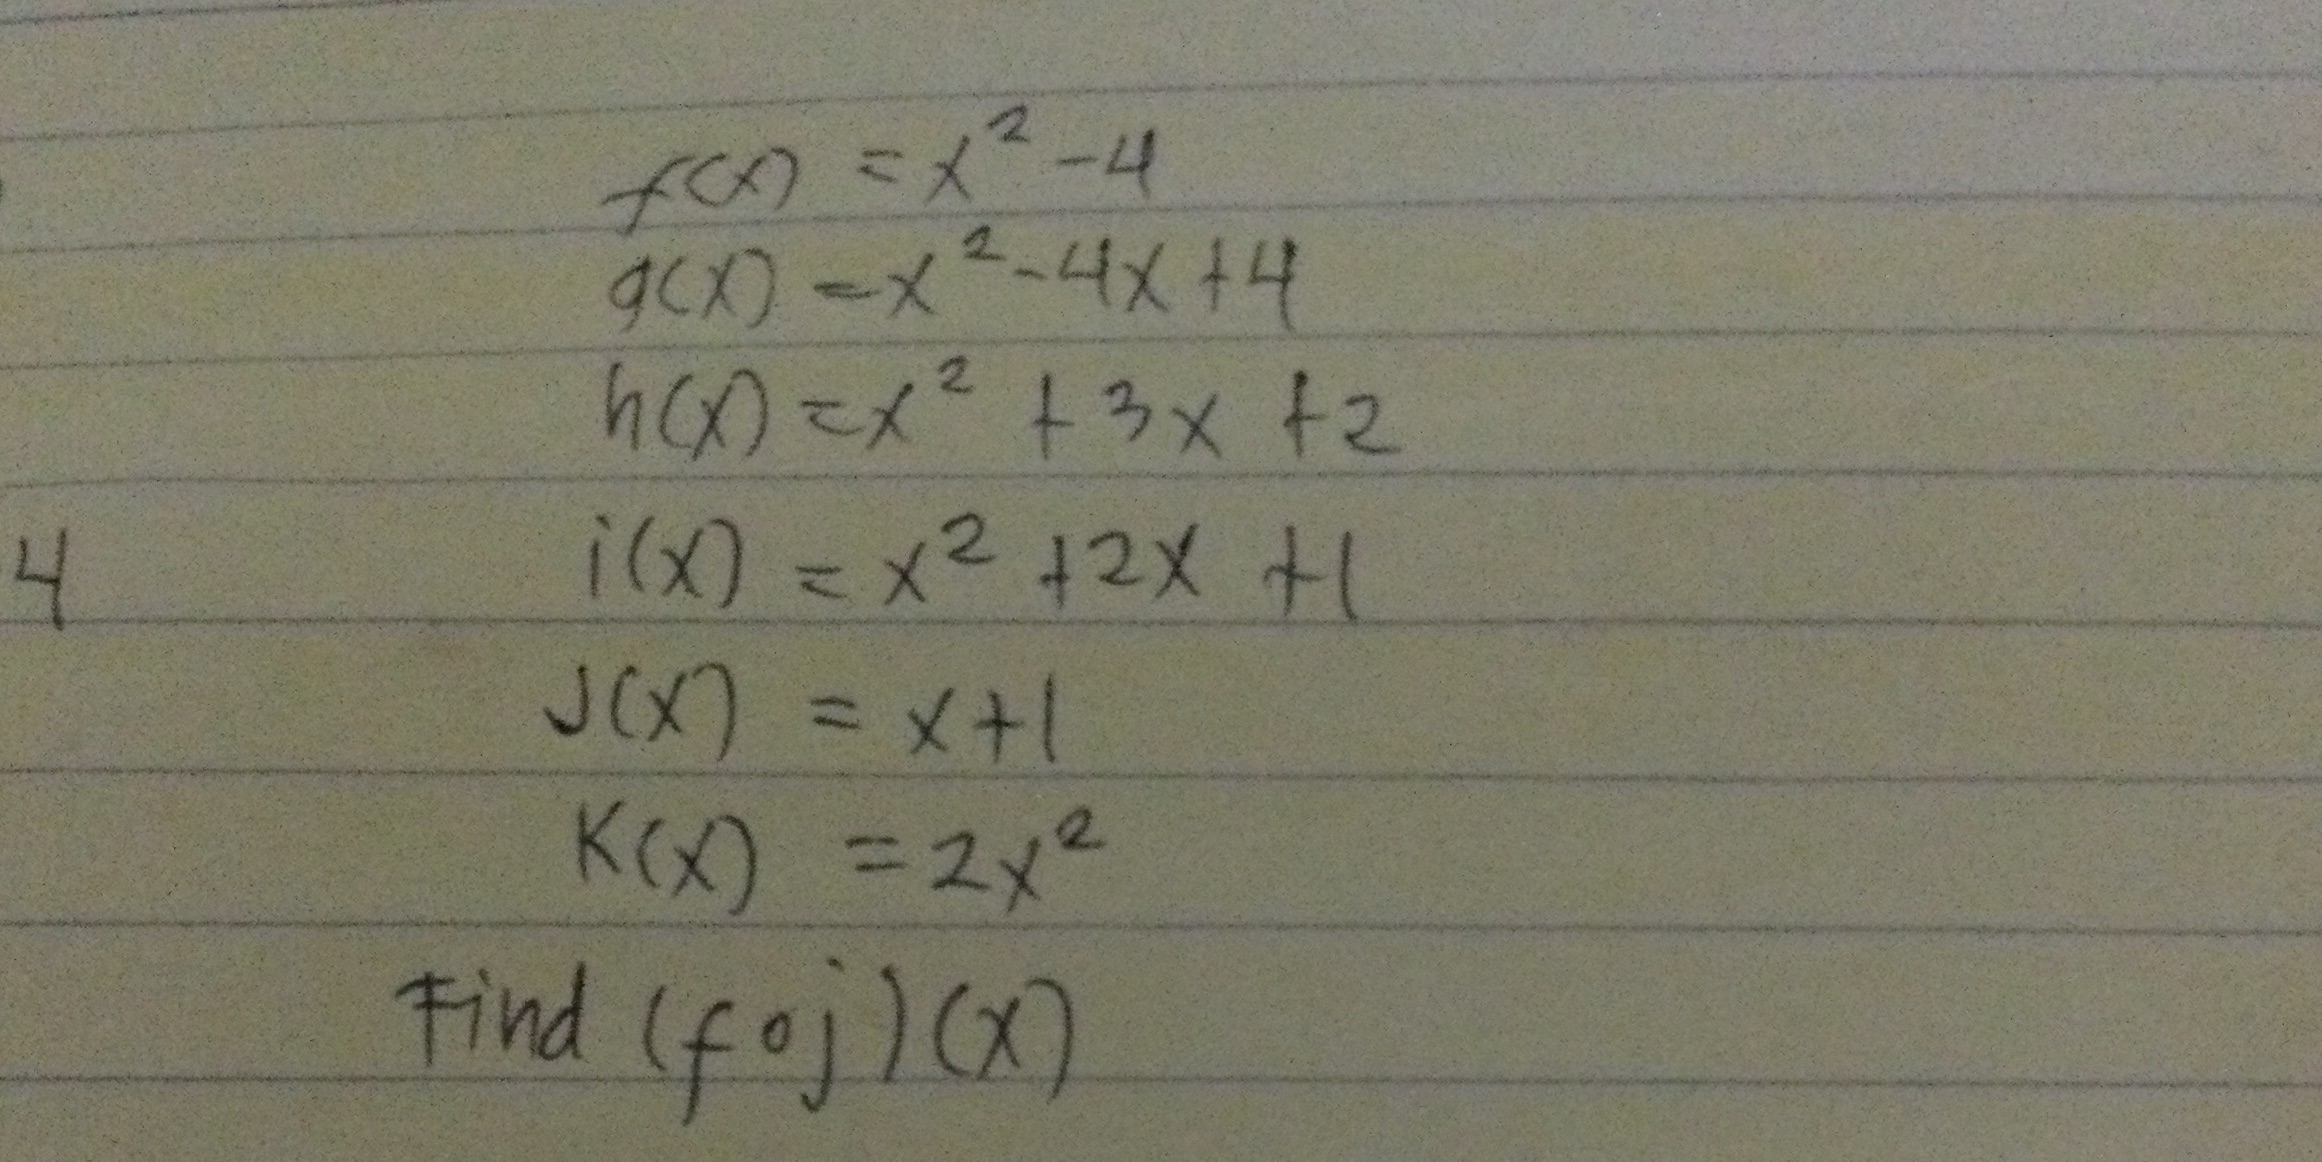 f(x) = x² - 4
g(x) = x² - 4x + 4
h(x) = x² + 3x + 2
4
i(x) = x² + 2x + 1
J(x) = x + 1
K(x) = 2x²
Find (f o j) (x)